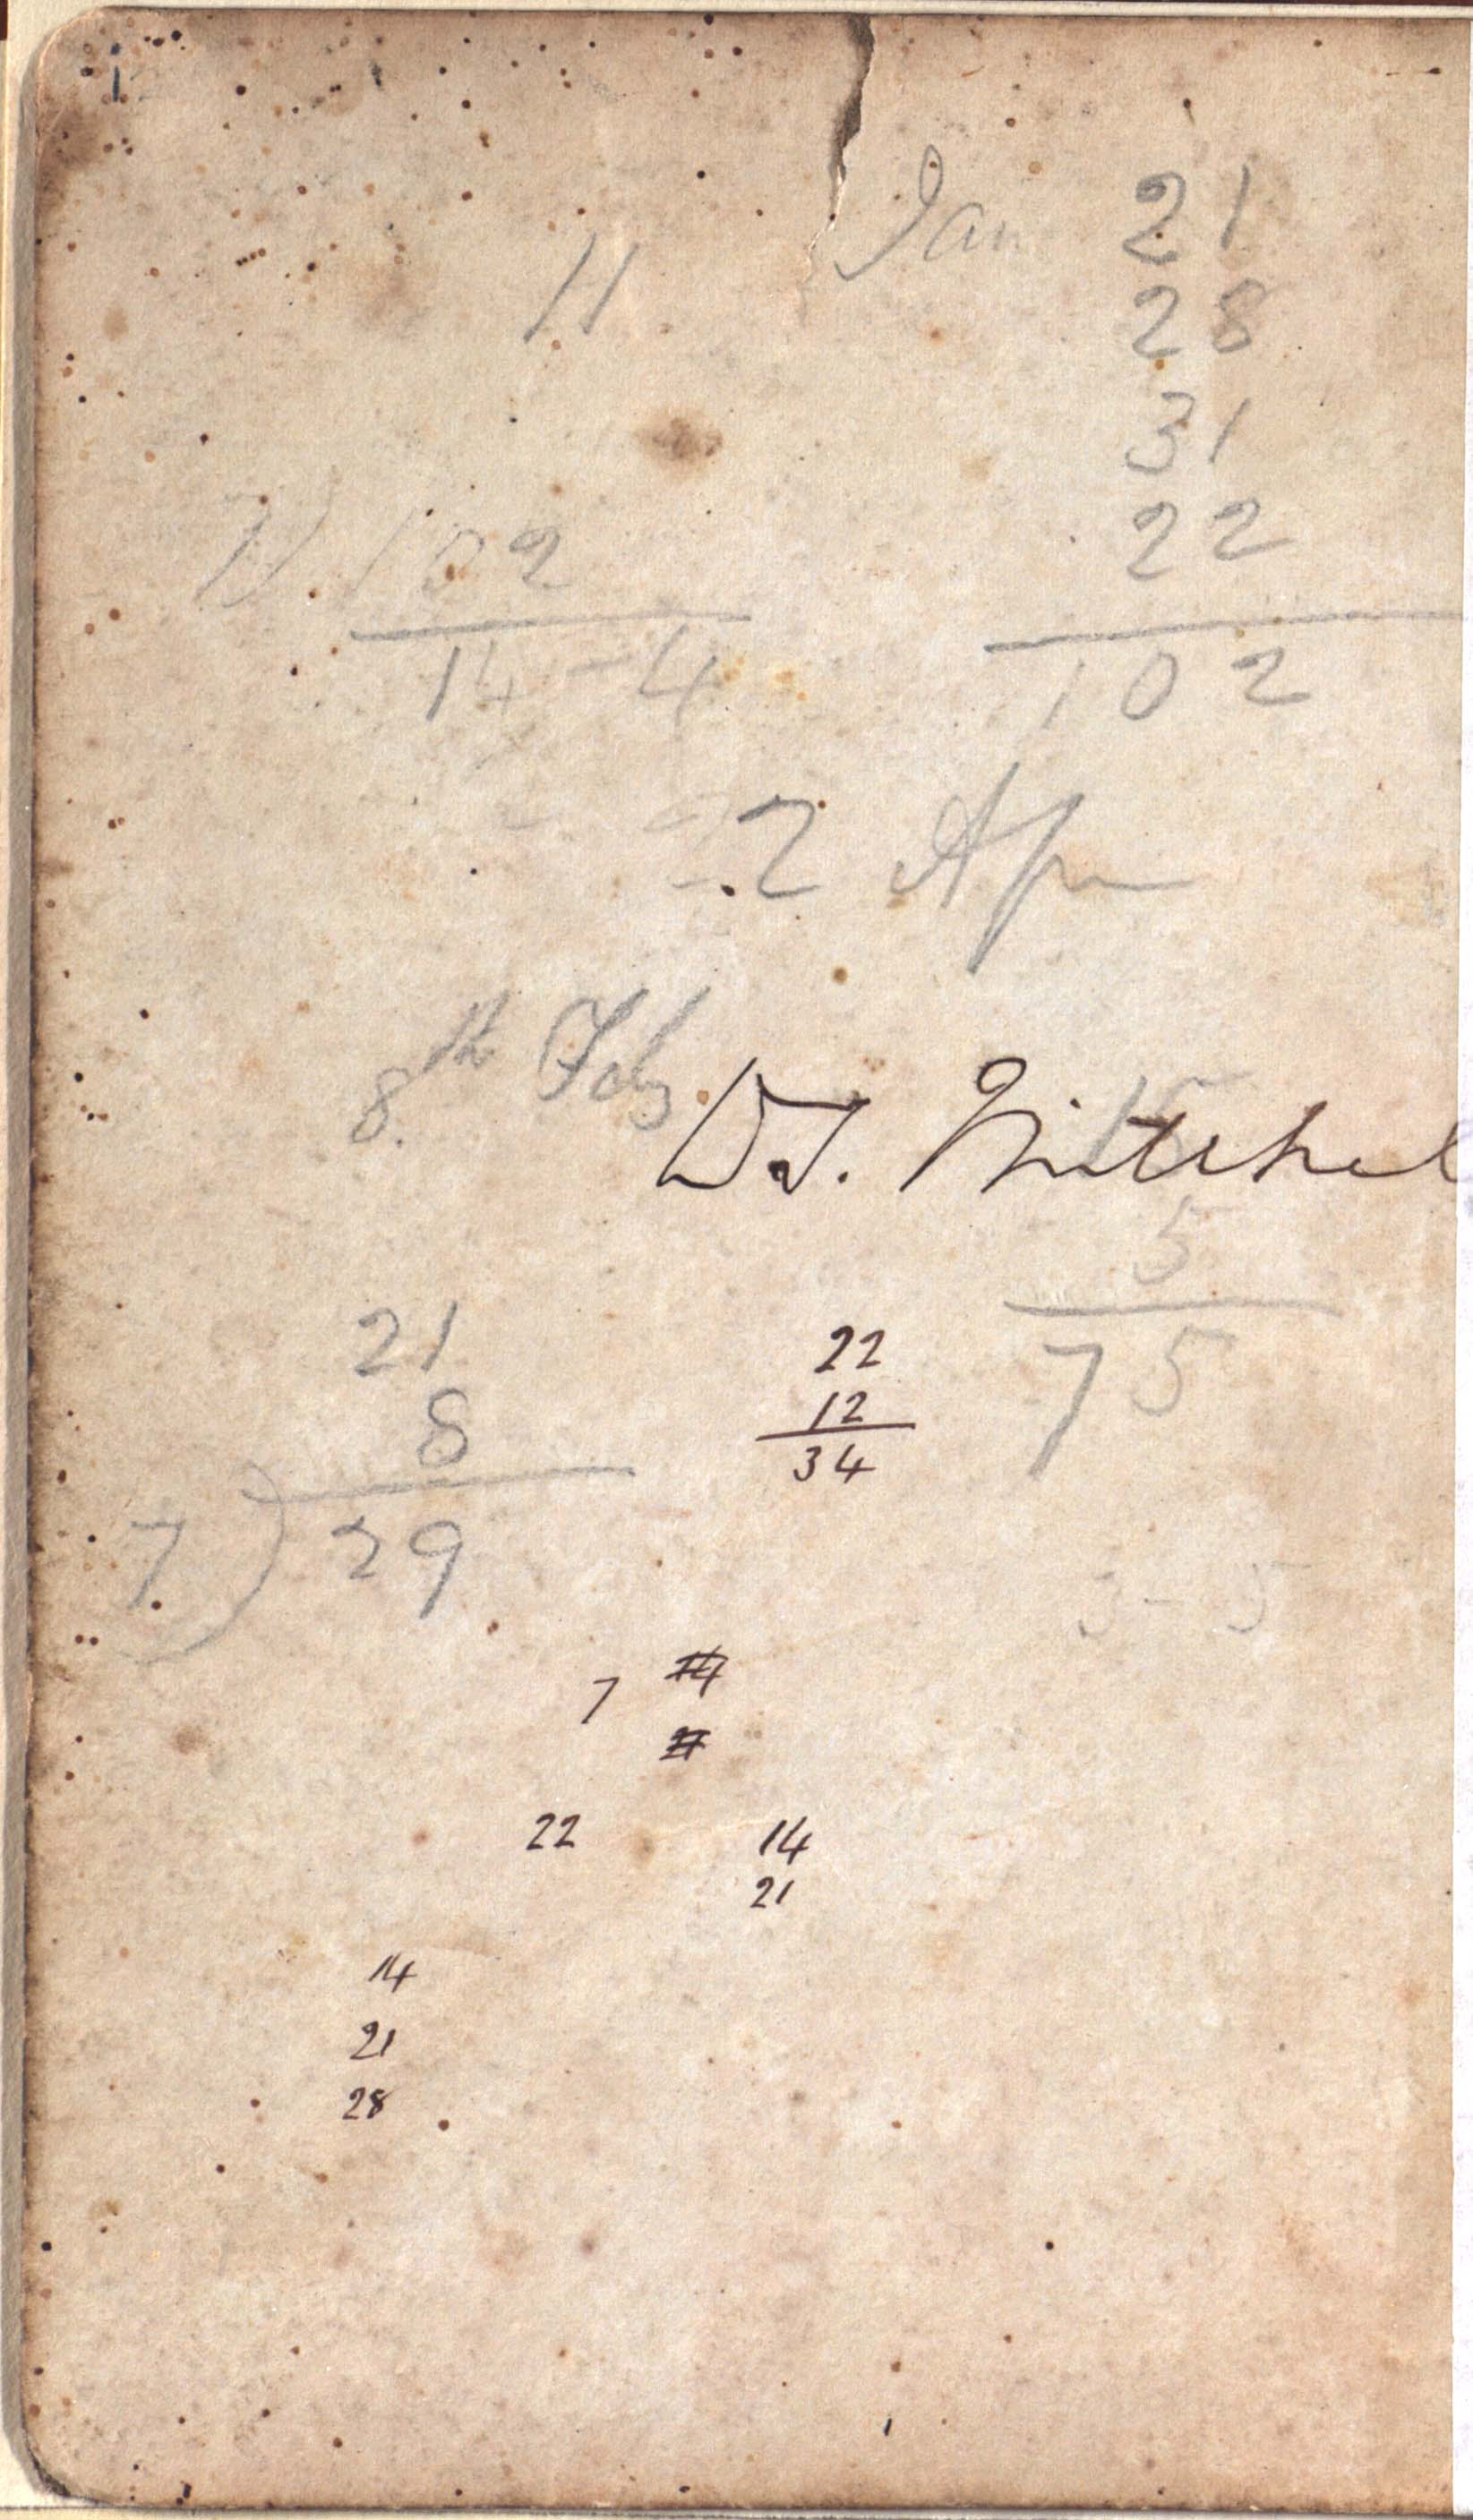 Jan 21
11
28
31
7) 102
22
14-4
102
2 Apr
8th Feby
15
D.J. Mitchel
5
75
21
8
7) 29
22
12
34
3-5
7
22
14
21
14
21
28